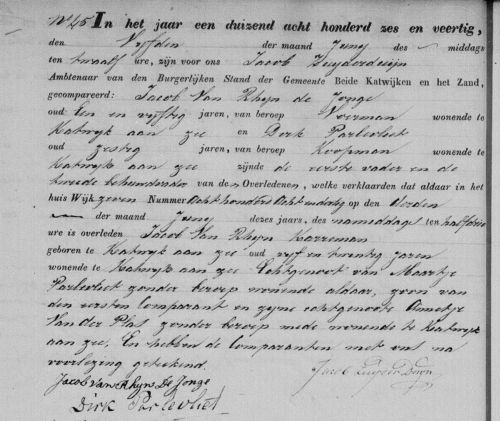 N 45 In het jaar een duizend acht honderd zes en veertig,
den Vyfden der maand Juny des middags
ten twaalf ure, zijn voor ons Jacob Zuyderduijn
Ambtenaar van den Burgerlijken Stand der Gemeente Beide Katwijken en het Zand,
gecompareerd: Jacob Van Rhyn de Jonge
oud Een en vyftig jaren, van beroep Voerman wonende te
Katwyk aan zee en Dirk Parlevliet
oud zestig jaren, van beroep Koopman wonende te
Katwyk aan zee zijnde de eerste vader en de
tweede behuwdvader van den Overledenen, welke verklaarden dat aldaar in het
huis Wijk zeven Nummer Acht honderd op den Derden
der maand Juny dezes jaars, des namiddags ten half drie
ure is overleden Jacob Van Rhyn Karreman
geboren te Katwyk aan zee oud vyf en twintig jaren
wonende te Katwyk aan zee Echtgenoot van Maartje
Parlevliet zonder beroep wonende aldaar, zoon van
den eersten Comparant en zyne echtgenoote Annetje
Van der Plas zonder beroep mede wonende te Katwyk
aan zee, En hebben de Comparanten met ons na
voorlezing geteekend.
Jacob Van Rhyn De Jonge
Jacob Zuyderduyn
Dirk Parlevliet